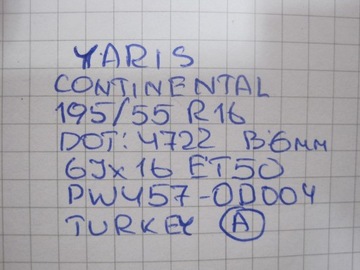 YARIS
CONTINENTAL
195/55 R16
DOT: 4722 B6mm
6Jx16 ET50
PW457-0D004
TURKEY A